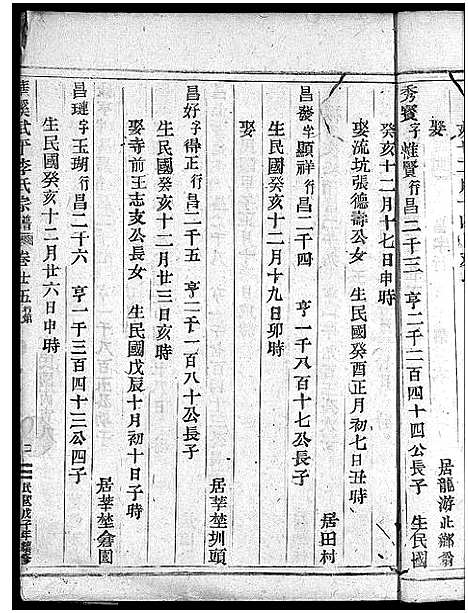 娶
居龍游北鄉
秀賢字惟賢行昌二千三 亨二千二百四十四公長子 生民國
癸亥十二月十七日申時
娶流坑張德壽公女 生民國癸酉正月初七日丑時
居田村
昌發字顯祥行昌二千四 亨一千八百十七公長子
生民國癸亥十二月十九日卯時
娶
居莘塋圳頭
昌好字得正行昌二千五 亨二千一百八十公長子
生民國癸亥十二月廿三日亥時
娶寺前王志支公長女 生民國戊辰十月初十日子時
居莘塋倉園
昌璉字玉瑚行昌二千六 亨一千三百四十三公四子
生民國癸亥十二月廿六日申時
溪武平李氏宗譜 卷廿五